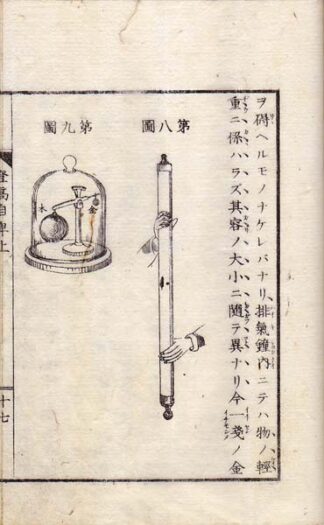 ヲ碍ヘルモノナケレバナリ排氣鐘内ニテハ物ノ輕
重ニ係ハラズ其容ノ大小ニ隨テ異ナリ今一戔ノ金
第八圖
第九圖
木
金
登高自卑上
十七